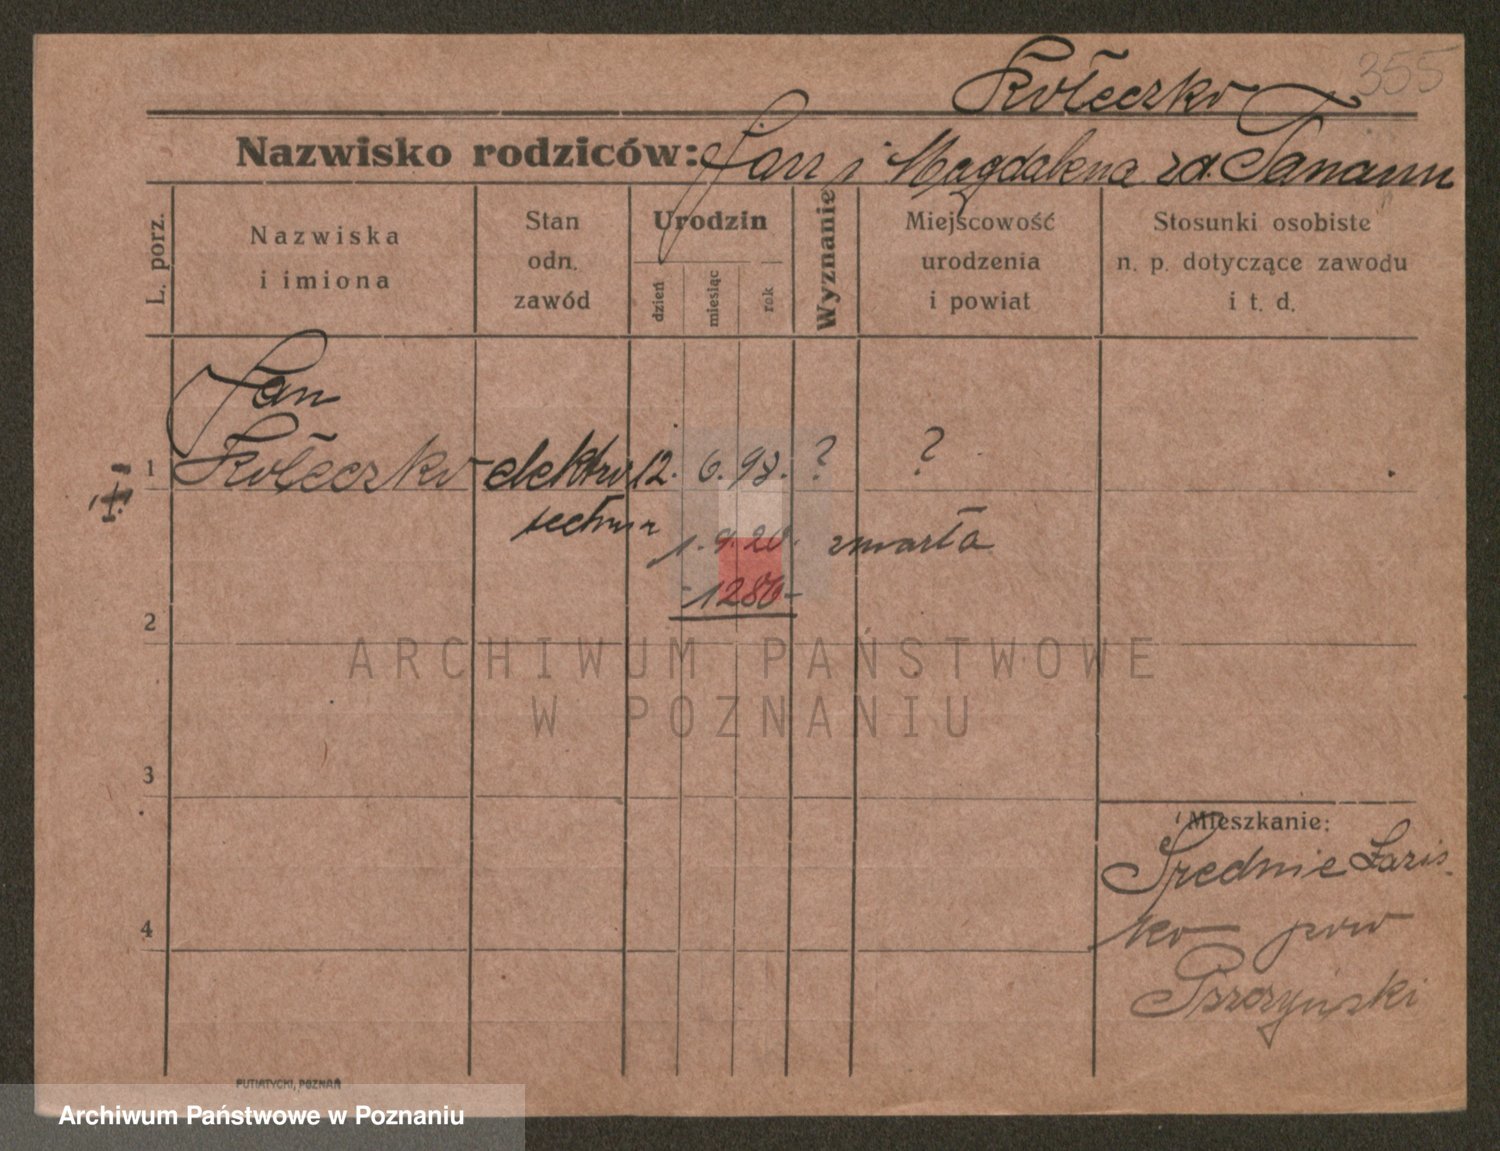 355
Kołeczko
Nazwisko rodziców: Jan i Magdalena zd. Panann
L. porz.
Nazwiska
i imiona
Stan
odn.
zawód
Urodzin
dzień
miesiąc
rok
Wyznanie
Miejscowość
urodzenia
i powiat
Stosunki osobiste
n. p. dotyczące zawodu
i t. d.
Jan
1 Kołeczko elektro 12. 6. 98. ? ?
1. 9. 20. zmarła
-1286-
2
ARCHIWUM PAŃSTWOWE
W POZNANIU
3
Mieszkanie:
Średnie Łazis-
4 ko pow
Pszczyński
PUTIATYCKI, POZNAŃ
Archiwum Państwowe w Poznaniu